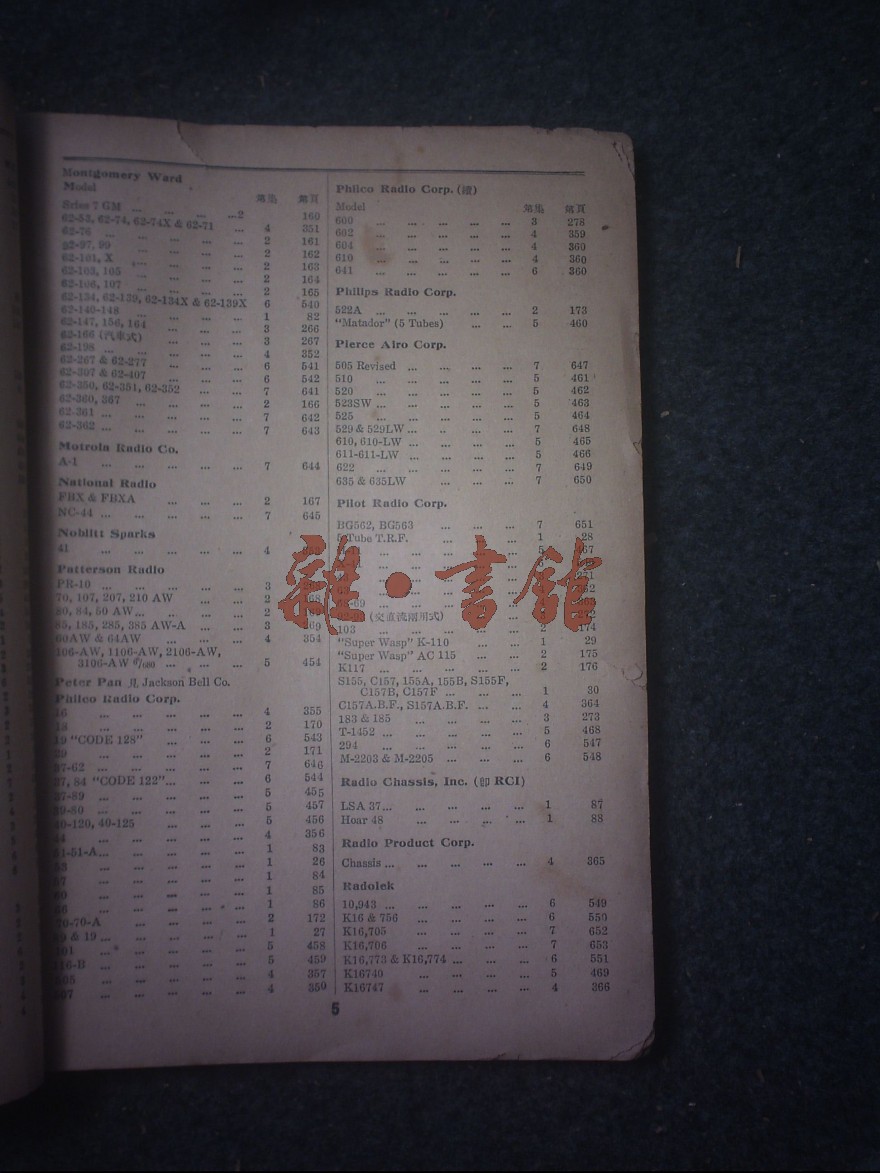 Montgomery Ward
Model 第集 第頁
Sries 7 GM ... ... ... ...2 160
62-53, 62-74, 62-74X & 62-71 ... 4 351
62-76 ... ... ... ... ... 2 161
62-97, 99 ... ... ... ... 2 162
62-101, X ... ... ... ... 2 163
62-103, 105 ... ... ... ... 2 164
62-106, 107 ... ... ... ... 2 165
62-134, 62-139, 62-134X & 62-139X 6 540
62-140-148 ... ... ... ... 1 82
62-147, 156, 164 ... ... ... 3 266
62-166 (汽車式) ... ... ... 3 267
62-198 ... ... ... ... ... 4 352
62-267 & 62-277 ... ... ... 6 541
62-307 & 62-407 ... ... ... 6 542
62-350, 62-351, 62-352 ... ... 7 641
62-360, 367 ... ... ... ... 2 166
62-361 ... ... ... ... ... 7 642
62-362 ... ... ... ... ... 7 643
Motrola Radio Co.
A-1 ... ... ... ... ... 7 644
National Radio
FBX & FBXA ... ... ... 2 167
NC-44 ... ... ... ... ... 7 645
Noblitt Sparks
41 ... ... ... ... ... 4
Patterson Radio
PR-10 ... ... ... ... ... 3
70, 107, 207, 210 AW ... ... 2
80, 84, 50 AW... ... ... ... 2
85, 185, 285, 385 AW-A ... ... 3
60AW & 64AW ... ... ... 4 354
106-AW, 1106-AW, 2106-AW,
3106-AW ... ... ... 5 454
Peter Pan 見 Jackson Bell Co.
Philco Radio Corp.
16 ... ... ... ... ... 4 355
18 ... ... ... ... ... 2 170
19 "CODE 128" ... ... ... 6 543
29 ... ... ... ... ... 2 171
37-62 ... ... ... ... ... 7 646
37, 84 "CODE 122"... ... ... 6 544
37-89 ... ... ... ... ... 5 455
39-80 ... ... ... ... ... 5 457
40-120, 40-125 ... ... ... 5 456
... ... ... ... ... 4 356
51-51-A... ... ... ... ... 1 83
... ... ... ... ... 1 26
... ... ... ... ... 1 84
... ... ... ... ... 1 85
... ... ... ... ... 1 86
70-70-A ... ... ... ... 2 172
& 19 ... ... ... ... ... 1 27
... ... ... ... ... 5 458
... ... ... ... ... 5 459
... ... ... ... ... 4 357
... ... ... ... ... 4 350
Philco Radio Corp. (續)
Model 第集 第頁
600 ... ... ... ... ... 3 278
602 ... ... ... ... ... 4 359
604 ... ... ... ... ... 4 360
610 ... ... ... ... ... 4 360
641 ... ... ... ... ... 6 360
Philips Radio Corp.
522A ... ... ... ... ... 2 173
"Matador" (5 Tubes) ... ... 5 460
Pierce Airo Corp.
505 Revised ... ... ... ... 7 647
510 ... ... ... ... ... 5 461
520 ... ... ... ... ... 5 462
523SW ... ... ... ... ... 5 463
525 ... ... ... ... ... 5 464
529 & 529LW ... ... ... ... 7 648
610, 610-LW ... ... ... ... 5 465
611-611-LW ... ... ... ... 5 466
622 ... ... ... ... ... 7 649
635 & 635LW ... ... ... 7 650
Pilot Radio Corp.
BG562, BG563 ... ... ... 7 651
5 Tube T.R.F. ... ... ... 1 28
(交直流兩用式)
103 ... ... ... ... ... 2 174
"Super Wasp" K-110 ... ... 1 29
"Super Wasp" AC 115 ... ... 2 175
K117 ... ... ... ... ... 2 176
S155, C157, 155A, 155B, S155F,
C157B, C157F ... ... ... 1 30
C157A.B.F., S157A.B.F. ... ... 4 364
183 & 185 ... ... ... ... 3 273
T-1452 ... ... ... ... ... 5 468
294 ... ... ... ... ... 6 547
M-2203 & M-2205 ... ... ... 6 548
Radio Chassis, Inc. (卽 RCI)
LSA 37... ... ... ... ... 1 87
Hoar 48 ... ... ... ... 1 88
Radio Product Corp.
Chassis ... ... ... ... ... 4 365
Radolek
10,943 ... ... ... ... ... 6 549
K16 & 756 ... ... ... ... 6 550
K16,705 ... ... ... ... 7 652
K16,706 ... ... ... ... 7 653
K16,773 & K16,774 ... ... ... 6 551
K16740 ... ... ... ... 5 469
K16747 ... ... ... ... 4 366
5
雜·書館